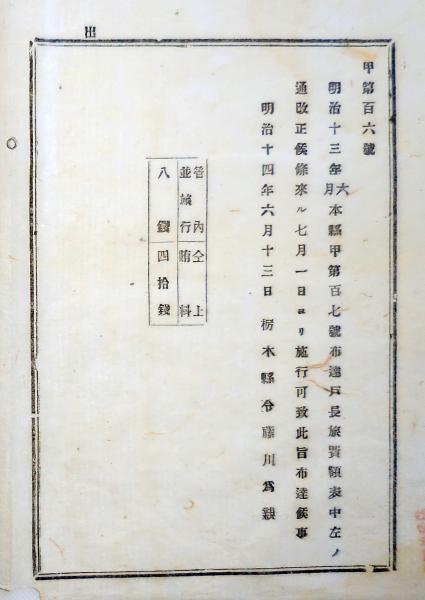 出
甲第百六號
明治十三年六月本縣甲第百七號布達戸長旅費額表中左ノ
通改正候條來ル七月一日ヨリ施行可致此旨布達候事
明治十四年六月十三日 栃木縣令藤川爲親
管内 仝上
並旅行 賄料
八錢 四拾錢